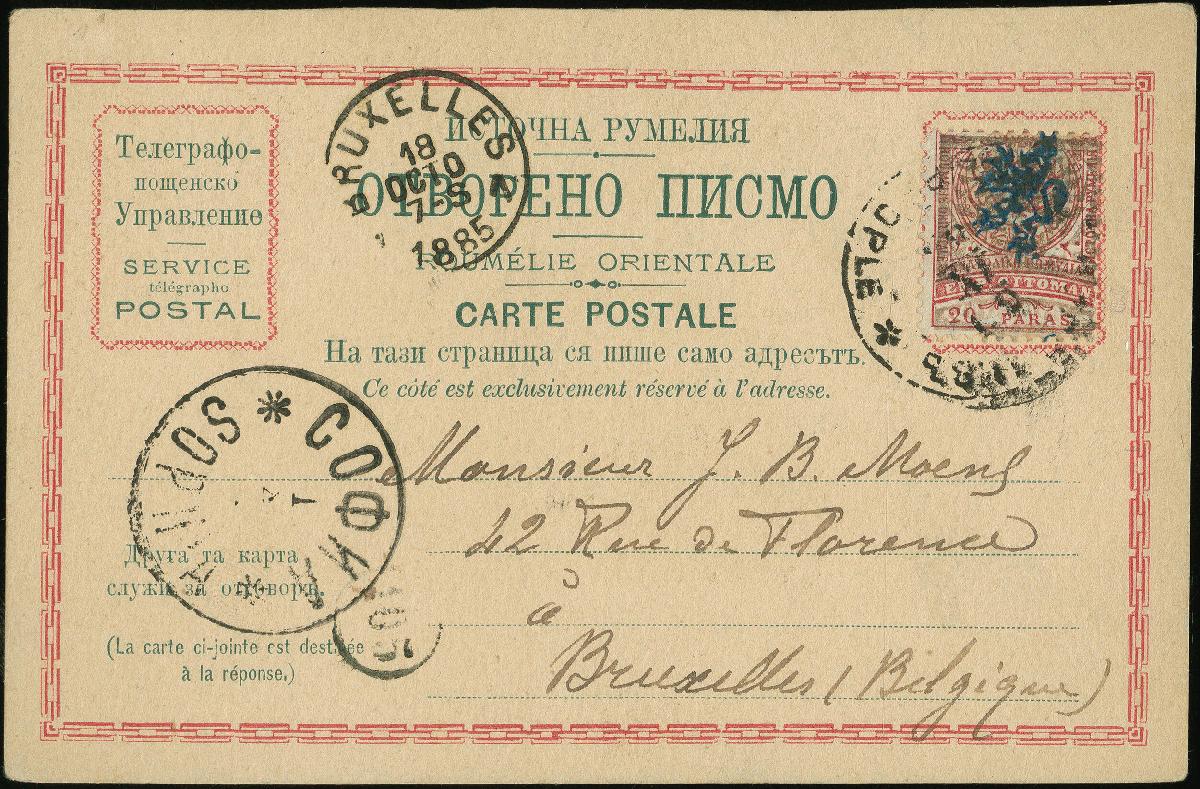 Телеграфо-
пощенско
Управление
SERVICE
télégrapho
POSTAL
BRUXELLES
18
OCTO
7-S
1885
ИЗТОЧНА РУМЕЛИЯ
ОТВОРЕНО ПИСМО
ROUMÉLIE ORIENTALE
CARTE POSTALE
На тази страница ся пише само адресътъ.
Ce côté est exclusivement réservé à l'adresse.
EMP. OTTOMAN
20 PARAS
OPLE
СОФИЯ
SOPHIA
Monsieur J. B. Moens
42 Rue de Florence
à
Bruxelles (Belgique)
Друга та карта
служи за отговоръ.
(La carte ci-jointe est destinée
à la réponse.)